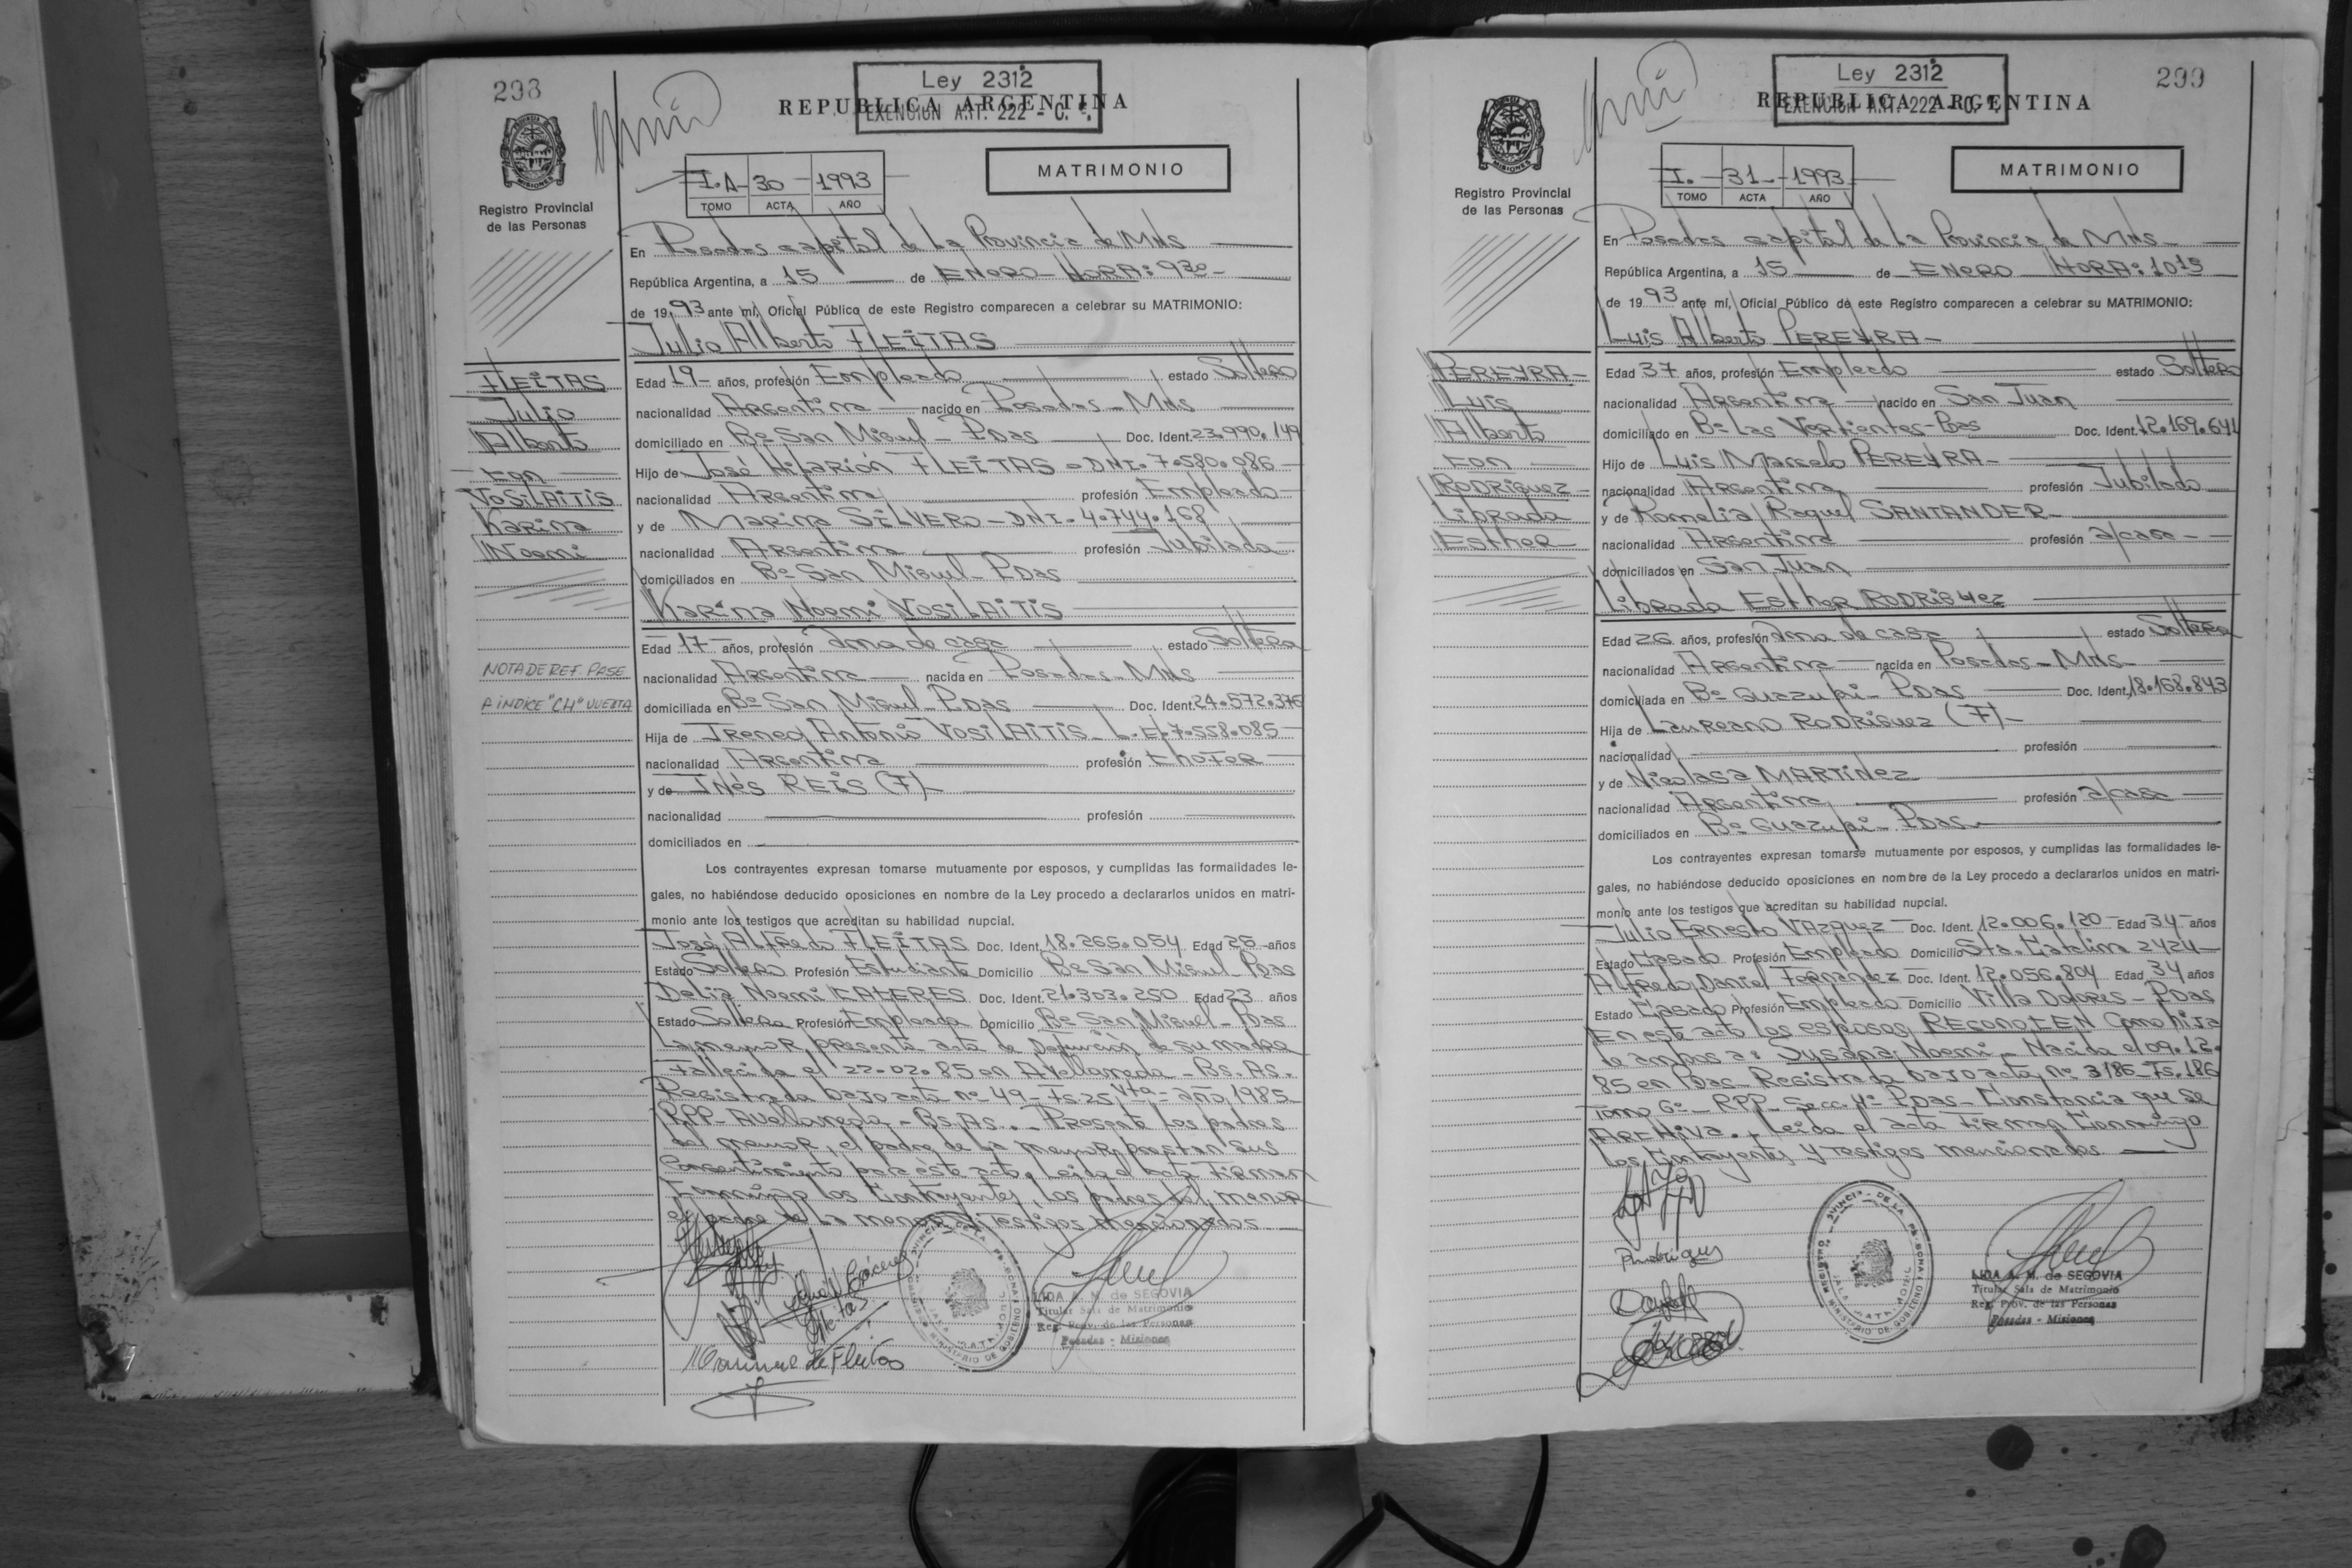 298
Ley 2312
REPUBLICA ARGENTINA
EXENCION ART. 222 - C. F.
PROVINCIA DE
MISIONES
Registro Provincial
de las Personas
I.A- 30 - 1993
TOMO ACTA AÑO
MATRIMONIO
En Posadas capital de la Provincia de Mnes
República Argentina, a 15 de ENERO - HORA: 930 -
de 19 93 ante mí, Oficial Público de este Registro comparecen a celebrar su MATRIMONIO:
Julio Alberto FLEITAS
Edad 19 - años, profesión Empleado estado Soltero
nacionalidad Argentina nacido en Posadas - Mnes
domiciliado en Bº San Miguel - Pdas Doc. Ident. 23.990.149
Hijo de José Hilarión FLEITAS - DNI. 7.580.086 -
nacionalidad Argentina profesión Empleado -
y de Marina SILVERO - DNI. 4.744.168
nacionalidad Argentina profesión Jubilada
domiciliados en Bº San Miguel - Pdas
Karina Noemi VOSILAITIS
Edad 17 - años, profesión Ama de casa estado Soltera
nacionalidad Argentina nacida en Posadas - Mnes
domiciliada en Bº San Miguel - Pdas Doc. Ident. 24.572.376
Hija de Ireneo Antonio VOSILAITIS - L.E. 7.558.085 -
nacionalidad Argentina profesión Chofer
y de Inés REIS (F) -
nacionalidad profesión
domiciliados en
Los contrayentes expresan tomarse mutuamente por esposos, y cumplidas las formalidades le-
gales, no habiéndose deducido oposiciones en nombre de la Ley procedo a declararlos unidos en matri-
monio ante los testigos que acreditan su habilidad nupcial.
José Alfredo FLEITAS Doc. Ident. 18.265.054 Edad 25 - años
Estado Soltero Profesión Estudiante Domicilio Bº San Miguel - Pdas
Delia Noemi CACERES Doc. Ident. 21.303.250 Edad 23 años
Estado Soltera Profesión Empleada Domicilio Bº San Miguel - Pdas
La menor presenta acta de Defunción de su madre
Fallecida el 22.02.85 en Avellaneda - Bs. As.
Registrada bajo acta nº 49 - Fs 25 Vta - año 1985
RPP - Avellaneda - Bs. As. - Presente los padres
del menor, el padre de la menor prestan sus
Consentimiento para éste acto. Leida el acta Firman
Conmigo los Contrayentes, los padres del menor
el padre de la menor y Testigos mencionados
FLEITAS
Julio
Alberto
Con
VOSILAITIS
Karina
Noemi
NOTA DE REF. PASE
A INDICE "CH" VUELTA
LIDA A. M. de SEGOVIA
Titular Sala de Matrimonio
Reg. Prov. de las Personas
Posadas - Misiones
299
Ley 2312
REPUBLICA ARGENTINA
EXENCION ART. 222 - C. F.
MISIONES
Registro Provincial
de las Personas
I. - 31 - 1993
TOMO ACTA AÑO
MATRIMONIO
En Posadas capital de la Provincia de Mnes -
República Argentina, a 15 de ENERO HORA: 1015
de 19 93 ante mí, Oficial Público de este Registro comparecen a celebrar su MATRIMONIO:
Luis Alberto PEREYRA -
Edad 37 años, profesión Empleado estado Soltero
nacionalidad Argentina nacido en San Juan
domiciliado en Bº Las Vertientes - Pdas Doc. Ident. 12.169.641
Hijo de Luis Marcelo PEREYRA -
nacionalidad Argentina profesión Jubilado
y de Romelia Raquel SANTANDER -
nacionalidad Argentina profesión a/casa - -
domiciliados en San Juan
Librada Esther RODRIGUEZ
Edad 26 años, profesión Ama de casa estado Soltera
nacionalidad Argentina nacida en Posadas - Mnes -
domiciliada en Bº Guazupi - Pdas Doc. Ident. 18.168.843
Hija de Laureano RODRIGUEZ (F) -
nacionalidad profesión
y de Nicolasa MARTINEZ
nacionalidad Argentina profesión a/casa
domiciliados en Bº Guazupi - Pdas
Los contrayentes expresan tomarse mutuamente por esposos, y cumplidas las formalidades le-
gales, no habiéndose deducido oposiciones en nombre de la Ley procedo a declararlos unidos en matri-
monio ante los testigos que acreditan su habilidad nupcial.
Julio Ernesto VAZQUEZ Doc. Ident. 12.006.120 Edad 34 - años
Estado Casado Profesión Empleado Domicilio Sta. Catalina 2424
Alfredo Daniel Fernandez Doc. Ident. 12.056.804 Edad 34 años
Estado Casado Profesión Empleado Domicilio Villa Dolores - Pdas
En este acto los esposos RECONOCEN Como hija
de ambos a: Susana Noemi - Nacida el 09.12.
85 en Pdas - Registrada bajo acta nº 3186 - Fs. 186
Tomo 6º - RPP - Secc. 4º Pdas - Constancia que se
ARCHIVA. Leida el acta Firman Conmigo
los Contrayentes y Testigos mencionados
PEREYRA -
Luis
Alberto
Con
RODRIGUEZ
Librada
Esther
LIDA A. M. de SEGOVIA
Titular Sala de Matrimonio
Reg. Prov. de las Personas
Posadas - Misiones